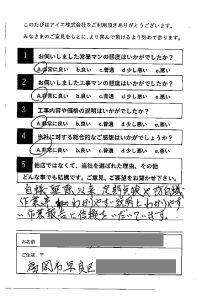 このたびはアイエ株式会社をご利用頂きありがとうございます。
みなさまのご意見をもとに、より喜んで頂けるよう努めて参ります。
1 お伺いしました営業マンの態度はいかがでしたか?
A.非常に良い b.良い c.普通 d.少し悪い e.悪い
2 お伺いしました工事マンの態度はいかがでしたか?
A.非常に良い b.良い c.普通 d.少し悪い e.悪い
3 工事内容や価格の説明はいかがでしたか?
A.非常に良い b.良い c.普通 d.少し悪い e.悪い
4 当社に対する総合的なご感想はいかがでしょうか?
A.非常に良い b.良い c.普通 d.少し悪い e.悪い
5 他店ではなくて、当社を選ばれた理由、その他
どんな事でも結構です。ご意見、ご要望をお聞かせ下さい。
以来 定期点検や
作業 わかりやすい説明とわかりやすい
作業報告に信頼
お名前
ご住所 〒
福岡市早良区